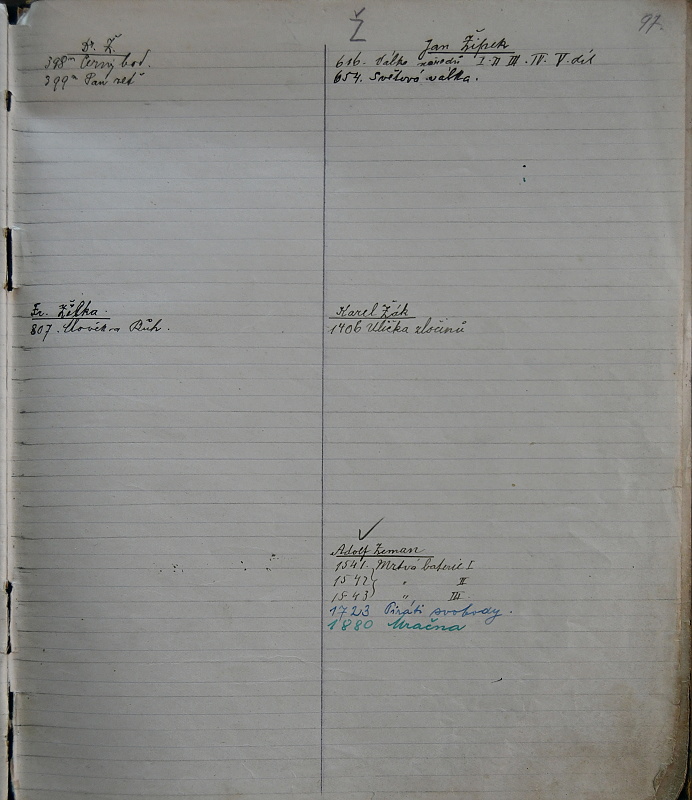 Ž
97.
Dr. Ž.
398m Černý bod.
399m Pan
Jan Žipek
616. Válka národů I. II III. IV. V. díl
654. Světová válka.
Fr. Žilka.
807.
Karel Žák
1406 Ulička zločinů
Adolf Zeman
1541. Mrtvá baterie I
1542 " II
1543 " III.
1723 Piráti svobody.
1880 Mračna